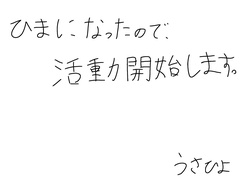 ひまになったので、
活動開始します。
うさひよ